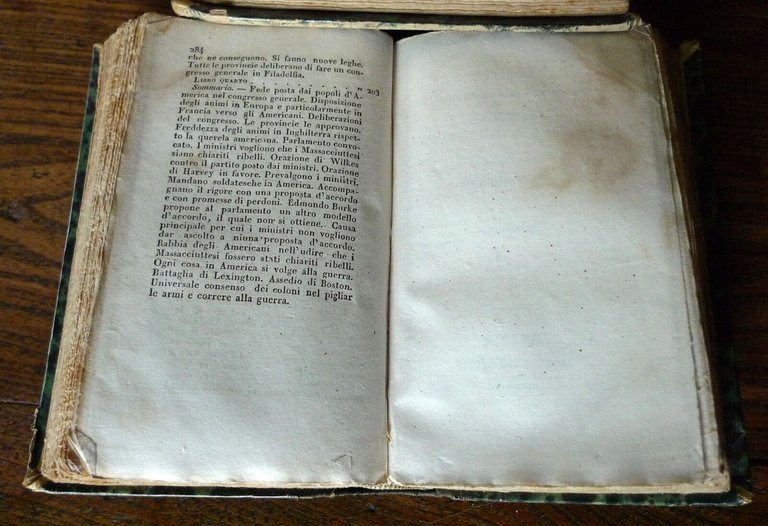 284
che ne conseguono. Si fanno nuove leghe.
Tutte le provincie deliberano di fare un con-
gresso generale in Filadelfia.
LIBRO QUARTO . . . . . . . . . . . „ 203
Sommario. — Fede posta dai popoli d'A-
merica nel congresso generale. Disposizione
degli animi in Europa e particolarmente in
Francia verso gli Americani. Deliberazioni
del congresso. Le provincie le approvano.
Freddezza degli animi in Inghilterra rispet-
to la querela americana. Parlamento convo-
cato. I ministri vogliono che i Massacciuttesi
siano chiariti ribelli. Orazione di Wilkes
contro il partito posto dai ministri. Orazione
di Harvey in favore. Prevalgono i ministri.
Mandano soldatesche in America. Accompa-
gnano il rigore con una proposta d'accordo
e con promesse di perdoni. Edmondo Burke
propone al parlamento un altro modello
d'accordo, il quale non si ottiene. Causa
principale per cui i ministri non vogliono
dar ascolto a niuna proposta d'accordo.
Rabbia degli Americani nell'udire che i
Massacciuttesi fossero stati chiariti ribelli.
Ogni cosa in America si volge alla guerra.
Battaglia di Lexington. Assedio di Boston.
Universale consenso dei coloni nel pigliar
le armi e correre alla guerra.